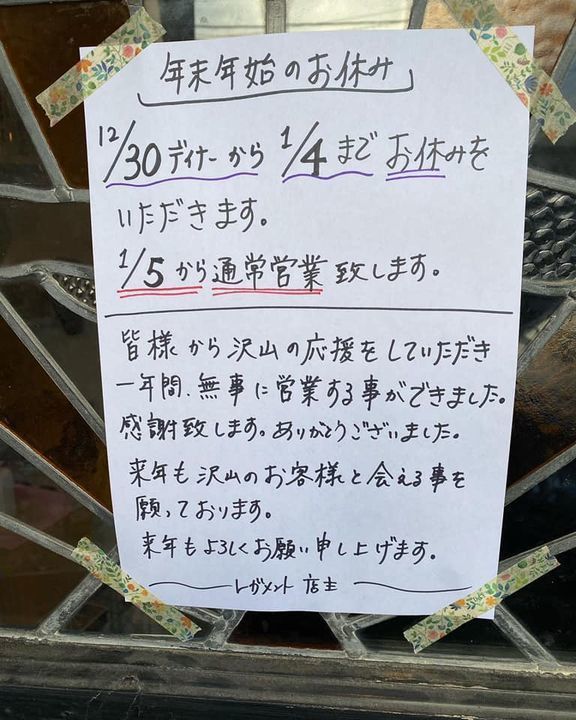 年末年始のお休み
12/30 ディナーから 1/4 まで お休みを
いただきます。
1/5 から 通常営業 致します。
皆様から沢山の応援をしていただき
一年間、無事に営業する事ができました。
感謝致します。ありがとうございました。
来年も沢山のお客様と会える事を
願っております。
来年もよろしくお願い申し上げます。
レガメント 店主